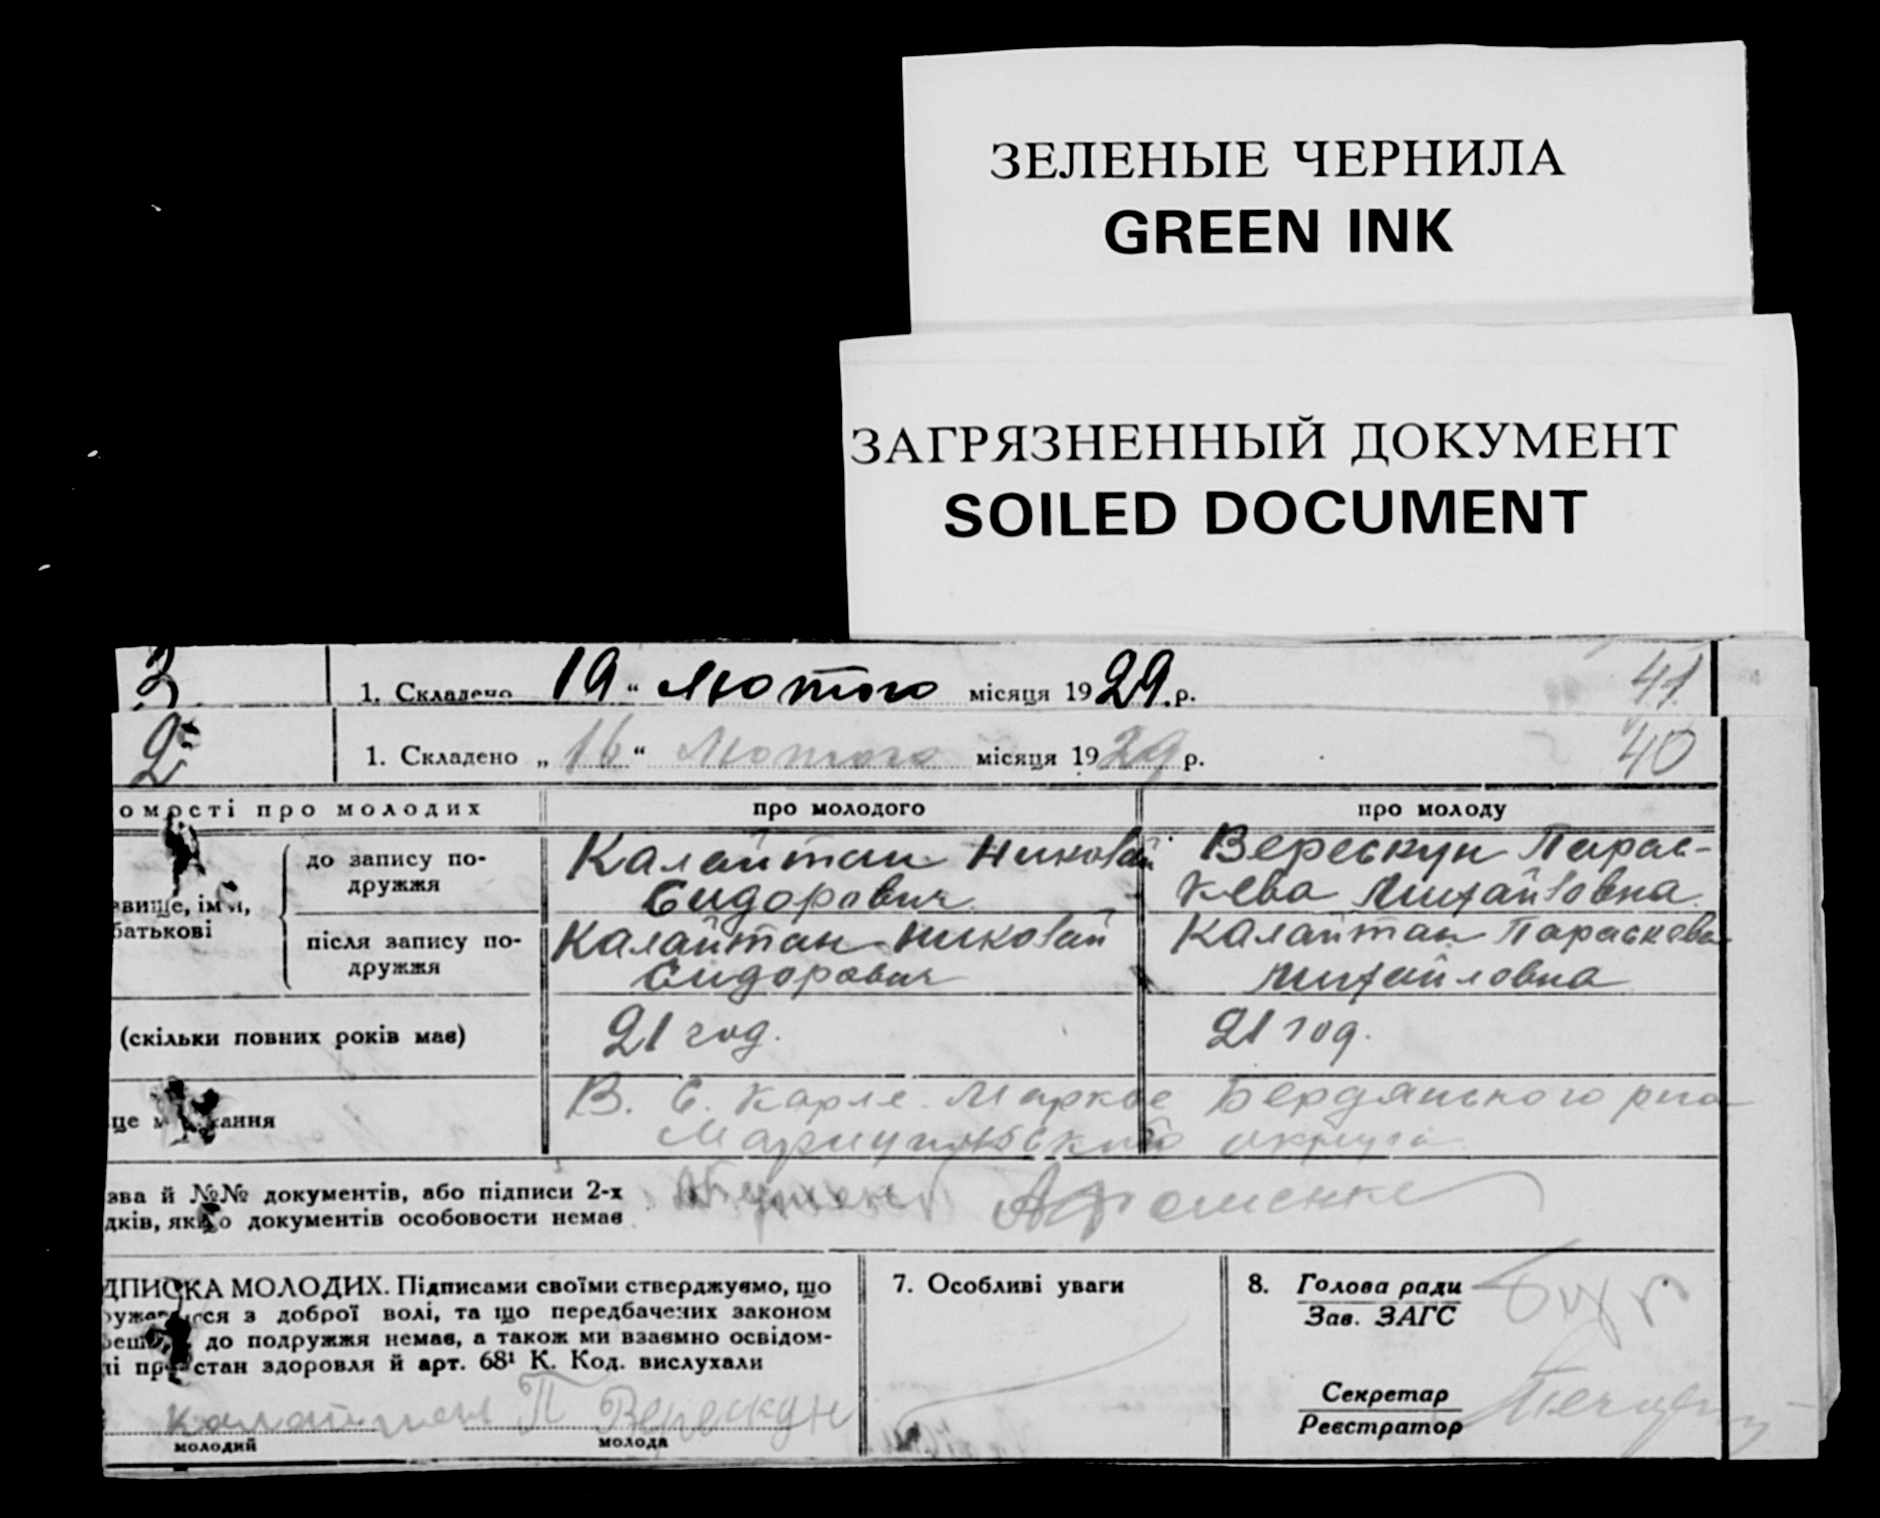 ЗЕЛЕНЫЕ ЧЕРНИЛА
GREEN INK
ЗАГРЯЗНЕННЫЙ ДОКУМЕНТ
SOILED DOCUMENT
3 1. Складено 19 “ Лютого місяця 1929 р. 41
2 1. Складено „ 16 “ Лютого місяця 1929 р. 40
омості про молодих про молодого про молоду
до запису по-
дружжя
Калайтан Николай
Сидорович
Верескун Парас-
кева Михайловна
вище, ім'я,
батькові
після запису по-
дружжя
Калайтан Николай
Сидорович
Калайтан Параскева
Михайловна
(скільки повних років має) 21 год. 21 год.
це кання
В. С. Карле Марксе Бердянського
Мариупольский округа
зва й №№ документів, або підписи 2-х
дків, якщо документів особовости немає
ДПИСКА МОЛОДИХ. Підписами своїми стверджуємо, що
ужаємся з доброї волі, та що передбачених законом
до подружжя немає, а також ми взаємно освідом-
лі про стан здоровля й арт. 68¹ К. Код. вислухали
Калайтан П Верескун
молодий молода
7. Особливі уваги
8. Голова ради
Зав. ЗАГС
Секретар
Реєстратор